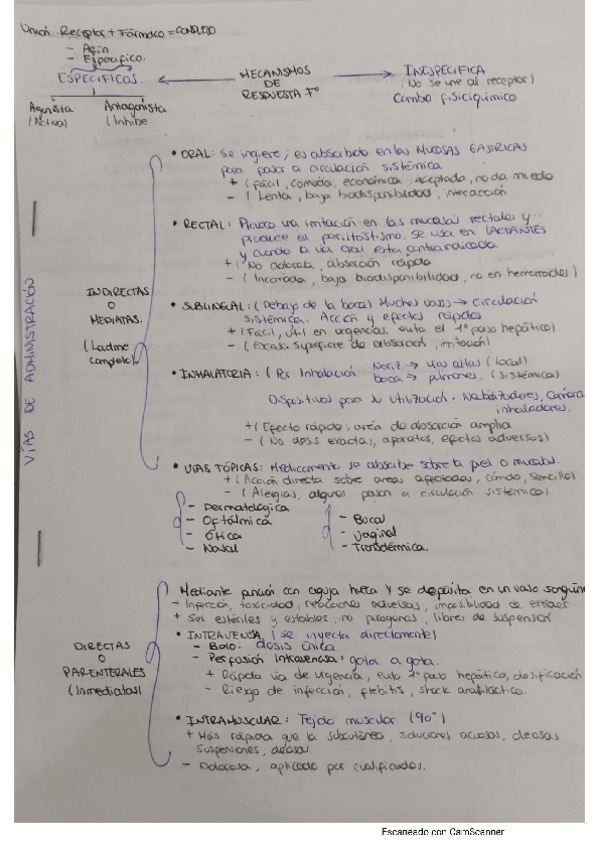 Unión Receptor + Fármaco = COMPLEJO
- Afín
- Específico.
ESPECIFICOS. MECANISMOS DE RESPUESTA Fº INESPECIFICA
(No se une al receptor)
Cambio fisicoquímico
Agonista Antagonista
(Activa) (Inhibe
VÍAS DE ADMINISTRACIÓN
INDIRECTAS
O
MEDIATAS.
(Ladme
completo).
• ORAL: Se ingiere, es absorbido en las MUCOSAS GASTRICAS
para pasar a circulación sistémica
+ (Fácil, comoda, económica, aceptada, no da miedo
- (Lenta, baja biodisponibilidad, interacción
• RECTAL: Provoca una irritación en las mucosas rectales y
produce el peristaltismo. Se usa en LACTANTES
y cuando la vía oral esta contraindicada
+ (No dolorosa, absorción rápida
- (Incomoda, baja biodisponibilidad, no en hemorroides)
• SUBLINGUAL: (Debajo de la boca) Muchos vasos → circulación
sistémica. Acción y efectos rápidos
+ (Fácil, útil en urgencias, evita el 1º paso hepático)
- (Escasa superficie de absorción, irritación)
• INHALATORIA: (Por inhalación Nariz → vías altas (local)
boca → pulmones. (sistémica)
Dispositivos para su utilización. Nebulizadores, Cámara
inhaladores.
+ (Efecto rápido, area de absorción amplia
- (No dosis exactas, aparatos, efectos adversos)
• VÍAS TÓPICAS: Medicamento se absorbe sobre la piel o mucosas
+ (Acción directa sobre areas afectadas, cómodo, sencillo)
- (Alergias, algunos pasan a circulación sistémica)
- Dermatológica
- Oftálmica
- Ótica
- Nasal
- Bucal
- Vaginal
- Transdérmica.
DIRECTAS
O
PARENTERALES
(Inmediatas)
Mediante punción con aguja hueca y se deposita en un vaso sanguíneo
- Infección, toxicidad, reacciones adversas, imposibilidad de extraer
+ Ser estériles y estables, no pirogenas, libres de suspensión
• INTRAVENOSA (se inyecta directamente)
- Bolo: dosis única
- Perfusión intravenosa: gota a gota.
+ Rápida vía de urgencia, evita 1º paso hepático, dosificación
- Riesgo de infección, flebitis, shock anafiláctico.
• INTRAMUSCULAR: Tejido muscular (90º)
+ Más rápida que la subcutánea, soluciones acuosas, oleosas
suspensiones, oleosas.
- Dolorosa, aplicado por cualificados.
Escaneado con CamScanner